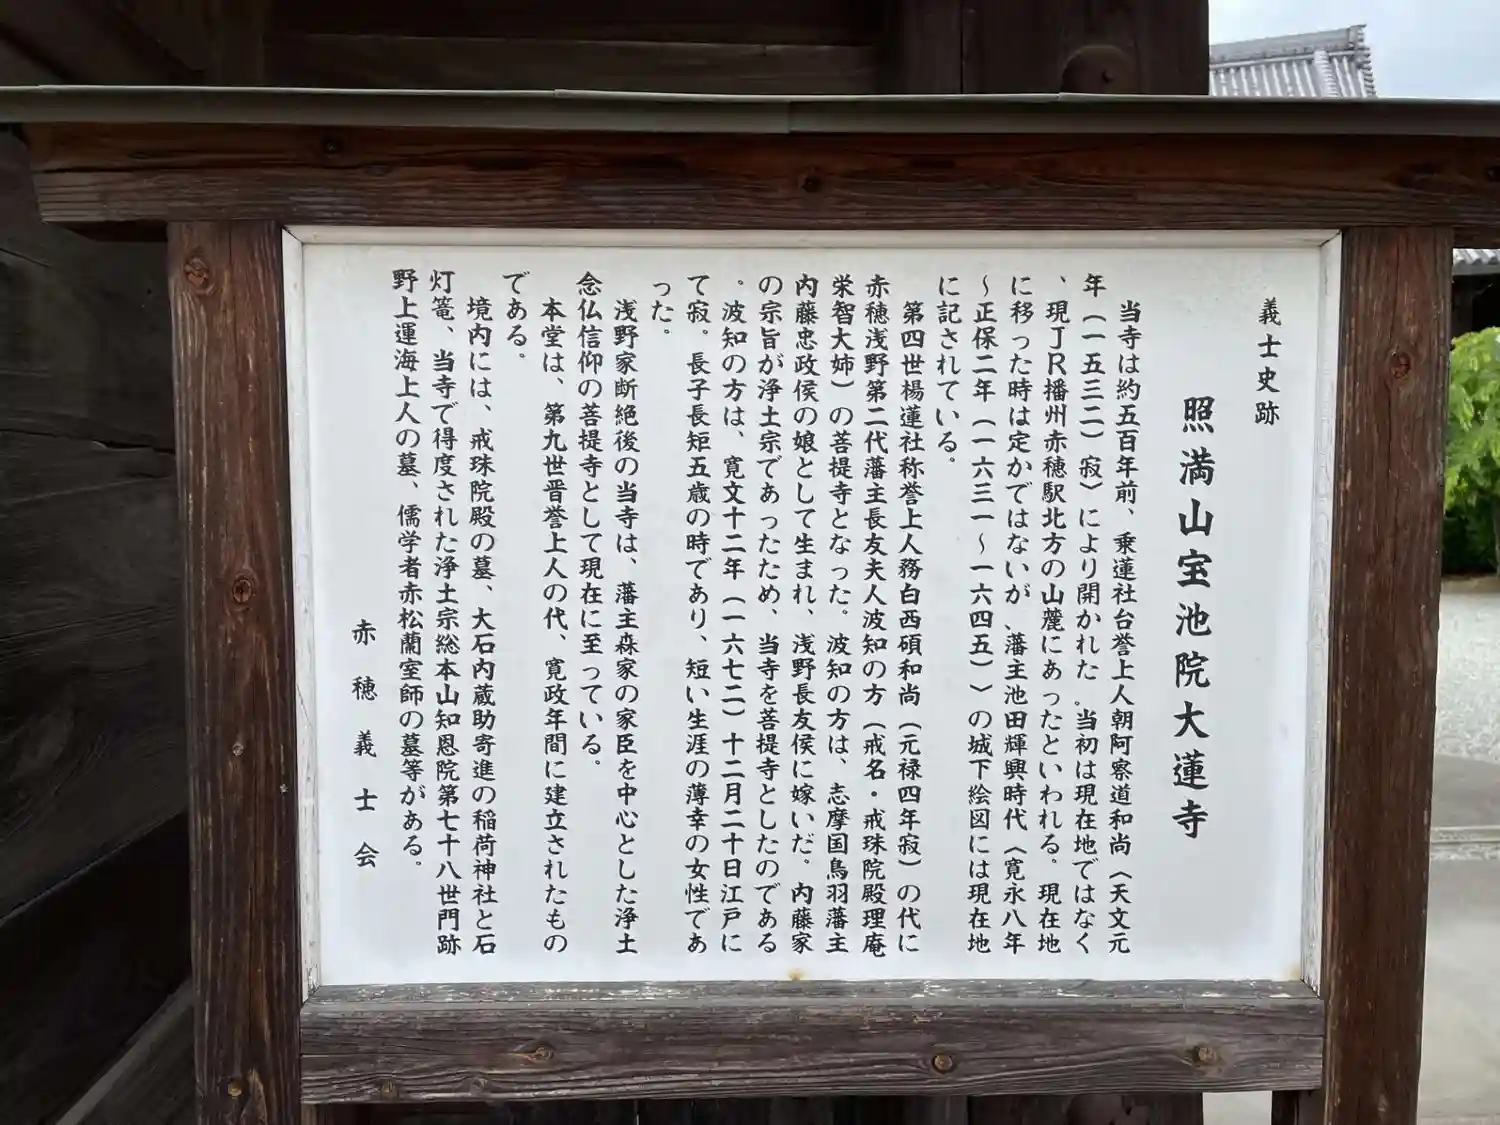 義士史跡
照満山宝池院大蓮寺
当寺は約五百年前、乗蓮社台誉上人朝阿察道和尚〈天文元
年(一五三二)寂〉により開かれた。当初は現在地ではなく
、現JR播州赤穂駅北方の山麓にあったといわれる。現在地
に移った時は定かではないが、藩主池田輝興時代〈寛永八年
～正保二年(一六三一～一六四五)〉の城下絵図には現在地
に記されている。
第四世楊蓮社称誉上人務白西碩和尚(元禄四年寂)の代に
赤穂浅野第二代藩主長友夫人波知の方(戒名・戒珠院殿理庵
栄智大姉)の菩提寺となった。波知の方は、志摩国鳥羽藩主
内藤忠政侯の娘として生まれ、浅野長友侯に嫁いだ。内藤家
の宗旨が浄土宗であったため、当寺を菩提寺としたのである
。波知の方は、寛文十二年(一六七二)十二月二十日江戸に
て寂。長子長矩五歳の時であり、短い生涯の薄幸の女性であ
った。
浅野家断絶後の当寺は、藩主森家の家臣を中心とした浄土
念仏信仰の菩提寺として現在に至っている。
本堂は、第九世晋誉上人の代、寛政年間に建立されたもの
である。
境内には、戒珠院殿の墓、大石内蔵助寄進の稲荷神社と石
灯篭、当寺で得度された浄土宗総本山知恩院第七十八世門跡
野上運海上人の墓、儒学者赤松蘭室師の墓等がある。
赤穂義士会